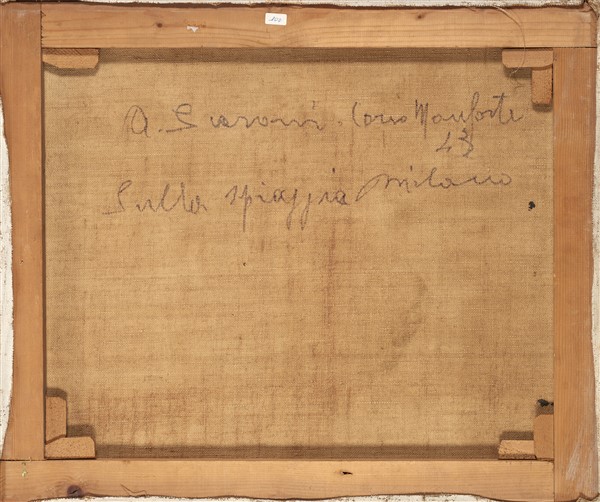 A. Scaroni. Corso Monforte
43
Sulla spiaggia Milano